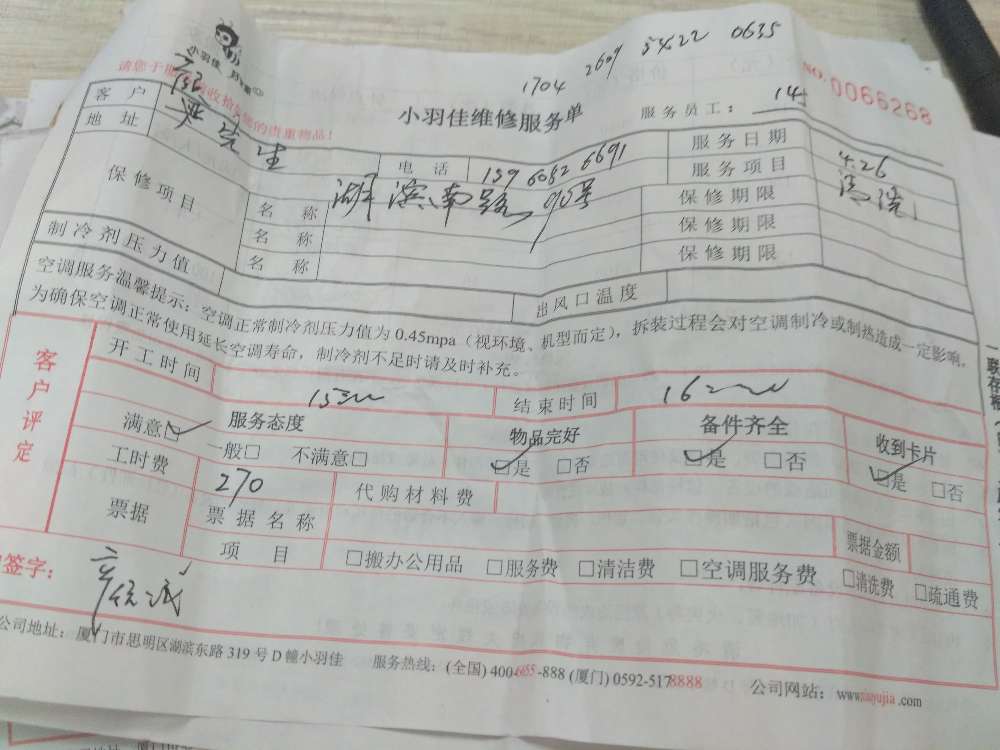 小羽佳
1704 2609 5422 0635
NO. 0066268
小羽佳维修服务单
服务员工：
客户 先生 电话 159 6082 6691 服务日期 4.26
地址 服务项目 清洗
保修项目 名称 湖滨南路90号 保修期限
名称 保修期限
名称 保修期限
制冷剂压力值 出风口温度
空调服务温馨提示：空调正常制冷剂压力值为0.45mpa（视环境、机型而定），拆装过程会对空调制冷或制热造成一定影响，
为确保空调正常使用延长空调寿命，制冷剂不足时请及时补充。
客户评定
开工时间 结束时间
服务态度 物品完好 备件齐全 收到卡片
满意☑ 一般□ 不满意□ ☑是 □否 ☑是 □否 ☑是 □否
工时费 270 代购材料费
票据 票据名称 票据金额
项目 □搬办公用品 □服务费 □清洁费 □空调服务费 □清洗费 □疏通费
签字：
公司地址：厦门市思明区湖滨东路319号D幢小羽佳 服务热线：(全国) 400-655-888 (厦门) 0592-5178888 公司网站：